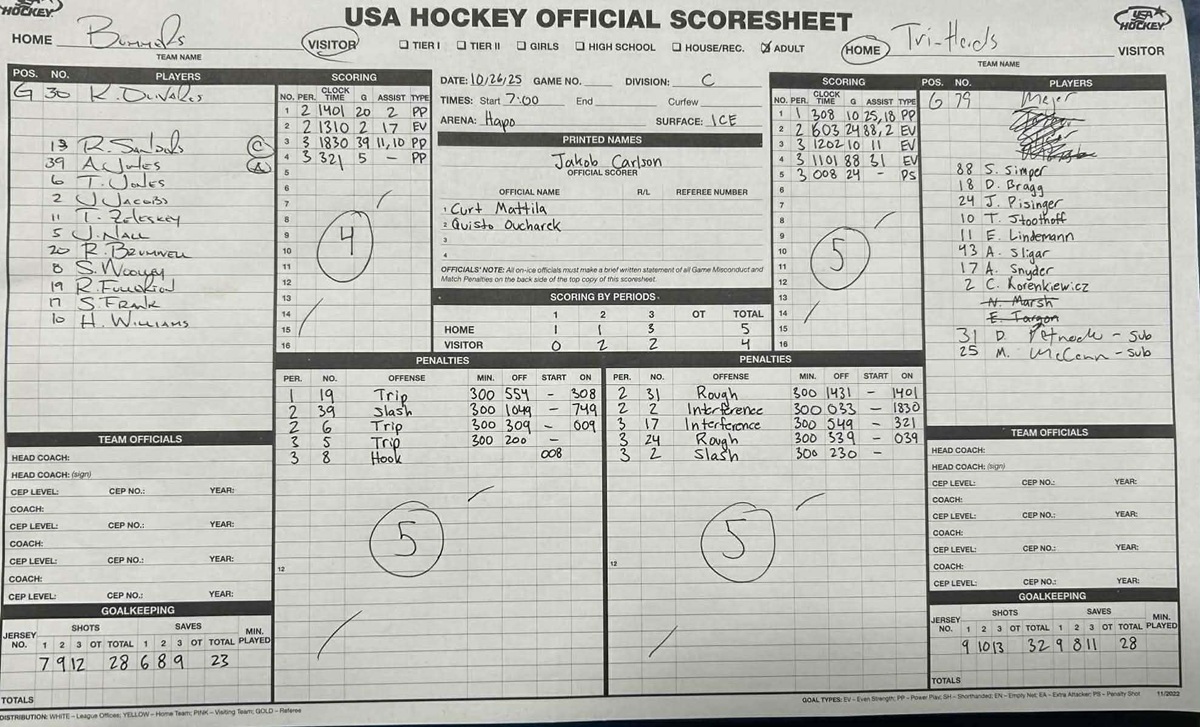 USA HOCKEY OFFICIAL SCORESHEET
HOCKEY
USA HOCKEY
HOME Bummers VISITOR
TEAM NAME
TIER I TIER II GIRLS HIGH SCHOOL HOUSE/REC. ADULT
HOME Tri-Hards VISITOR
TEAM NAME
POS. NO. PLAYERS
G 30 K. Olivares
13 R. Sandals C
39 A. Jones A
6 T. Jones
2 J. Jacobs
11 T. Zeleskey
5 J. Nall
20 R. Brumwell
8 S. Woolley
19 R. Fullerton
17 S. Frank
10 H. Williams
TEAM OFFICIALS
HEAD COACH:
HEAD COACH: (sign)
CEP LEVEL: CEP NO.: YEAR:
COACH:
CEP LEVEL: CEP NO.: YEAR:
COACH:
CEP LEVEL: CEP NO.: YEAR:
COACH:
CEP LEVEL: CEP NO.: YEAR:
GOALKEEPING
SHOTS SAVES
JERSEY NO. 1 2 3 OT TOTAL 1 2 3 OT TOTAL MIN. PLAYED
7 9 12 28 6 8 9 23
TOTALS
SCORING
NO. PER. CLOCK TIME G ASSIST TYPE
1 2 1401 20 2 PP
2 2 1310 2 17 EV
3 3 1830 39 11,10 PP
4 3 321 5 - PP
5
6
7
8
9
10
11
12
13
14
15
16
4
DATE: 10/26/25 GAME NO. DIVISION: C
TIMES: Start 7:00 End Curfew
ARENA: Hapo SURFACE: ICE
PRINTED NAMES
Jakob Carlson
OFFICIAL SCORER
OFFICIAL NAME R/L REFEREE NUMBER
1 Curt Mattila
2 Quisto Oucharek
3
4
OFFICIALS' NOTE: All on-ice officials must make a brief written statement of all Game Misconduct and
Match Penalties on the back side of the top copy of this scoresheet.
SCORING BY PERIODS
1 2 3 OT TOTAL
HOME 1 1 3 5
VISITOR 0 2 2 4
SCORING
NO. PER. CLOCK TIME G ASSIST TYPE
1 1 308 10 25,18 PP
2 2 603 24 88,2 EV
3 3 1202 10 11 EV
4 3 1101 88 31 EV
5 3 008 24 - PS
6
7
8
9
10
11
12
13
14
15
16
5
PENALTIES
PER. NO. OFFENSE MIN. OFF START ON
1 19 Trip 300 554 - 308
2 39 Slash 300 1049 - 749
2 6 Trip 300 309 - 009
3 5 Trip 300 200 -
3 8 Hook 008
5
12
PENALTIES
PER. NO. OFFENSE MIN. OFF START ON
2 31 Rough 300 1431 - 1401
2 2 Interference 300 033 - 1830
3 17 Interference 300 549 - 321
3 24 Rough 300 339 - 039
3 2 Slash 300 230 -
5
12
POS. NO. PLAYERS
G 79 Mejer
88 S. Simper
18 D. Bragg
24 J. Pisinger
10 T. Stoothoff
11 E. Lindemann
93 A. Sligar
17 A. Snyder
2 C. Korenkiewicz
N. Marsh
E. Targon
31 D. - Sub
25 M. McCann - Sub
TEAM OFFICIALS
HEAD COACH:
HEAD COACH: (sign)
CEP LEVEL: CEP NO.: YEAR:
COACH:
CEP LEVEL: CEP NO.: YEAR:
COACH:
CEP LEVEL: CEP NO.: YEAR:
COACH:
CEP LEVEL: CEP NO.: YEAR:
GOALKEEPING
SHOTS SAVES
JERSEY NO. 1 2 3 OT TOTAL 1 2 3 OT TOTAL MIN. PLAYED
9 10 13 32 9 8 11 28
TOTALS
DISTRIBUTION: WHITE – League Offices; YELLOW – Home Team; PINK – Visiting Team; GOLD – Referee
GOAL TYPES: EV – Even Strength; PP – Power Play; SH – Shorthanded; EN – Empty Net; EA – Extra Attacker; PS – Penalty Shot 11/2022